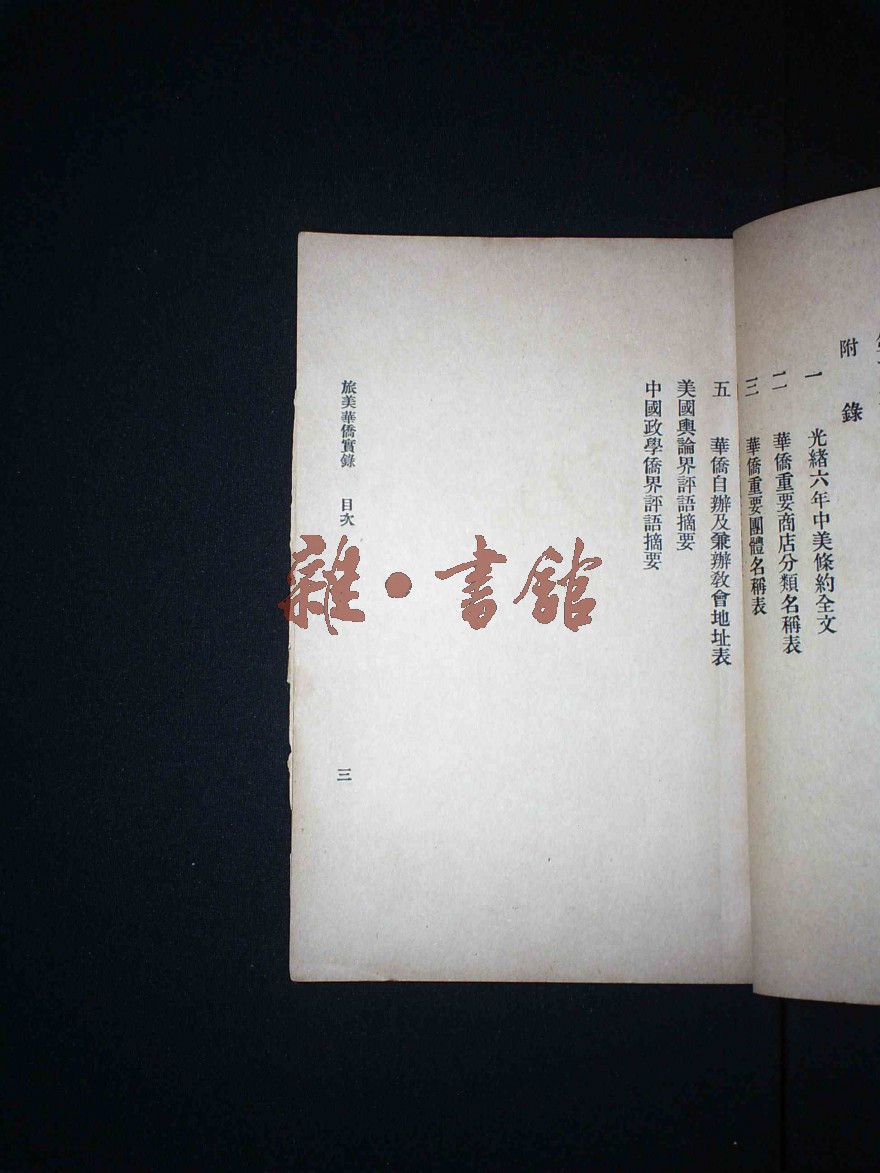 附　錄
一　光緒六年中美條約全文
二　華僑重要商店分類名稱表
三　華僑重要團體名稱表
五　華僑自辦及兼辦敎會地址表
美國輿論界評語摘要
中國政學僑界評語摘要
旅美華僑實錄　目次
三
雜·書館